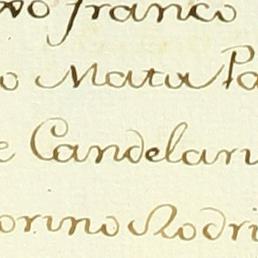 vo franco
o Mata Pa
e Candelari
orino Rodri